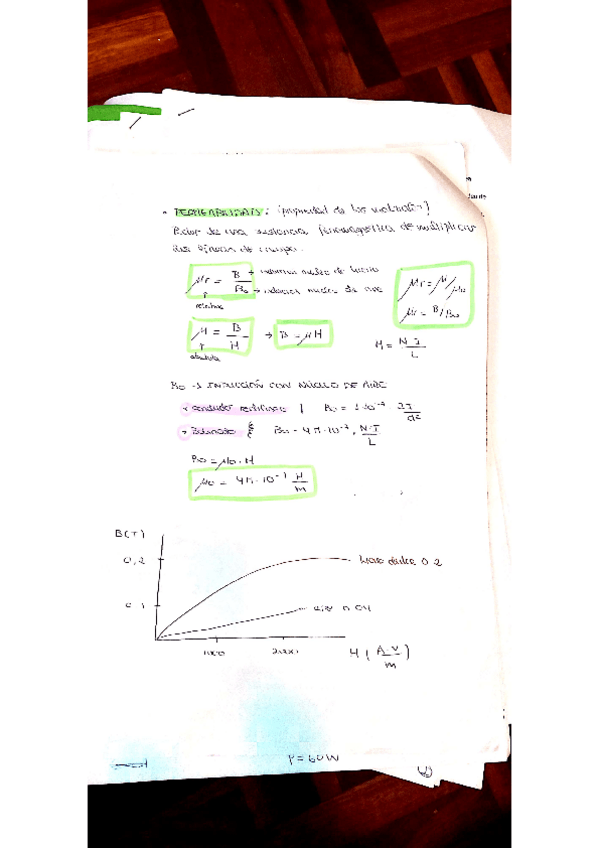 • PERMEABILIDAD: (propiedad de los materiales)
Poder de una sustancia ferromagnética de multiplicar
las líneas de campo.
μr = B / B₀
→ inducción núcleo de hierro
→ inducción núcleo de aire
relativa
μr = μ/μ₀
μr = B/B₀
μ = B / H → B = μH
absoluta
H = N·I / L
B₀ → INDUCCIÓN CON NÚCLEO DE AIRE
→ conductor rectilíneo | B₀ =
→ Solenoide B₀ = 4π·10⁻⁷ · N·I / L
B₀ = μ₀·H
μ₀ = 4π·10⁻⁷ H/m
B(T)
0,2
hierro dulce 0.2
0,1
aire 0.04
1000 2000 H (A·v / m)
P = 60W